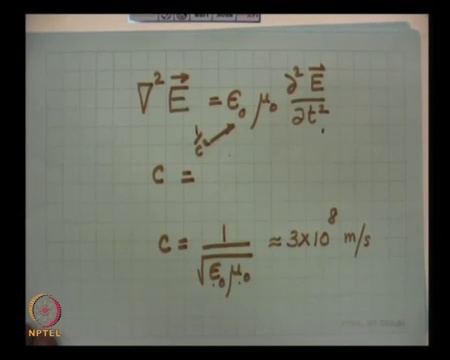 ∇² E⃗ = ε₀ μ₀ ∂² E⃗ / ∂t²
1/c²
C =
C = 1 / √(ε₀ μ₀) ≈ 3×10⁸ m/s
NPTEL